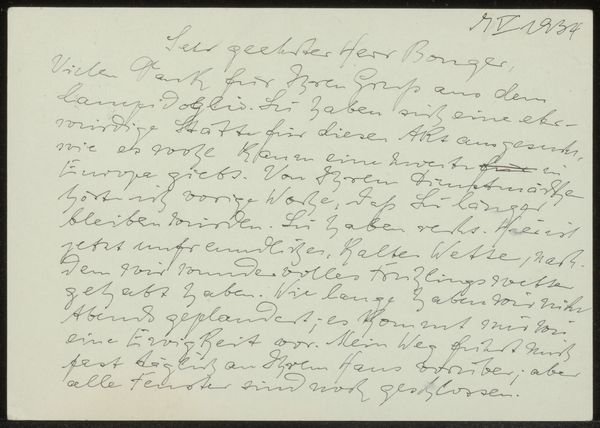 V 1934
Sehr geehrter Herr Bonger,
Vielen Dank für Ihren Gruß aus dem
Campidoglio. Sie haben sich eine ehr-
würdige Stätte für diesen Akt ausgesucht,
wie es wohl kaum eine zweite in
Europa giebt. Von Ihrem Dienstmädchen
hörte ich vorige Woche, daß Sie länger
bleiben würden. Sie haben recht. Hier ist
jetzt unfreundliches, kaltes Wetter, nach-
dem wir wundervolles Frühlingswetter
gehabt haben. Wie lange haben wir nicht
Abends geplaudert; es kommt mir wie
eine Ewigkeit vor. Mein Weg führt mich
fast täglich an Ihrem Haus vorüber; aber
alle Fenster sind noch geschlossen.